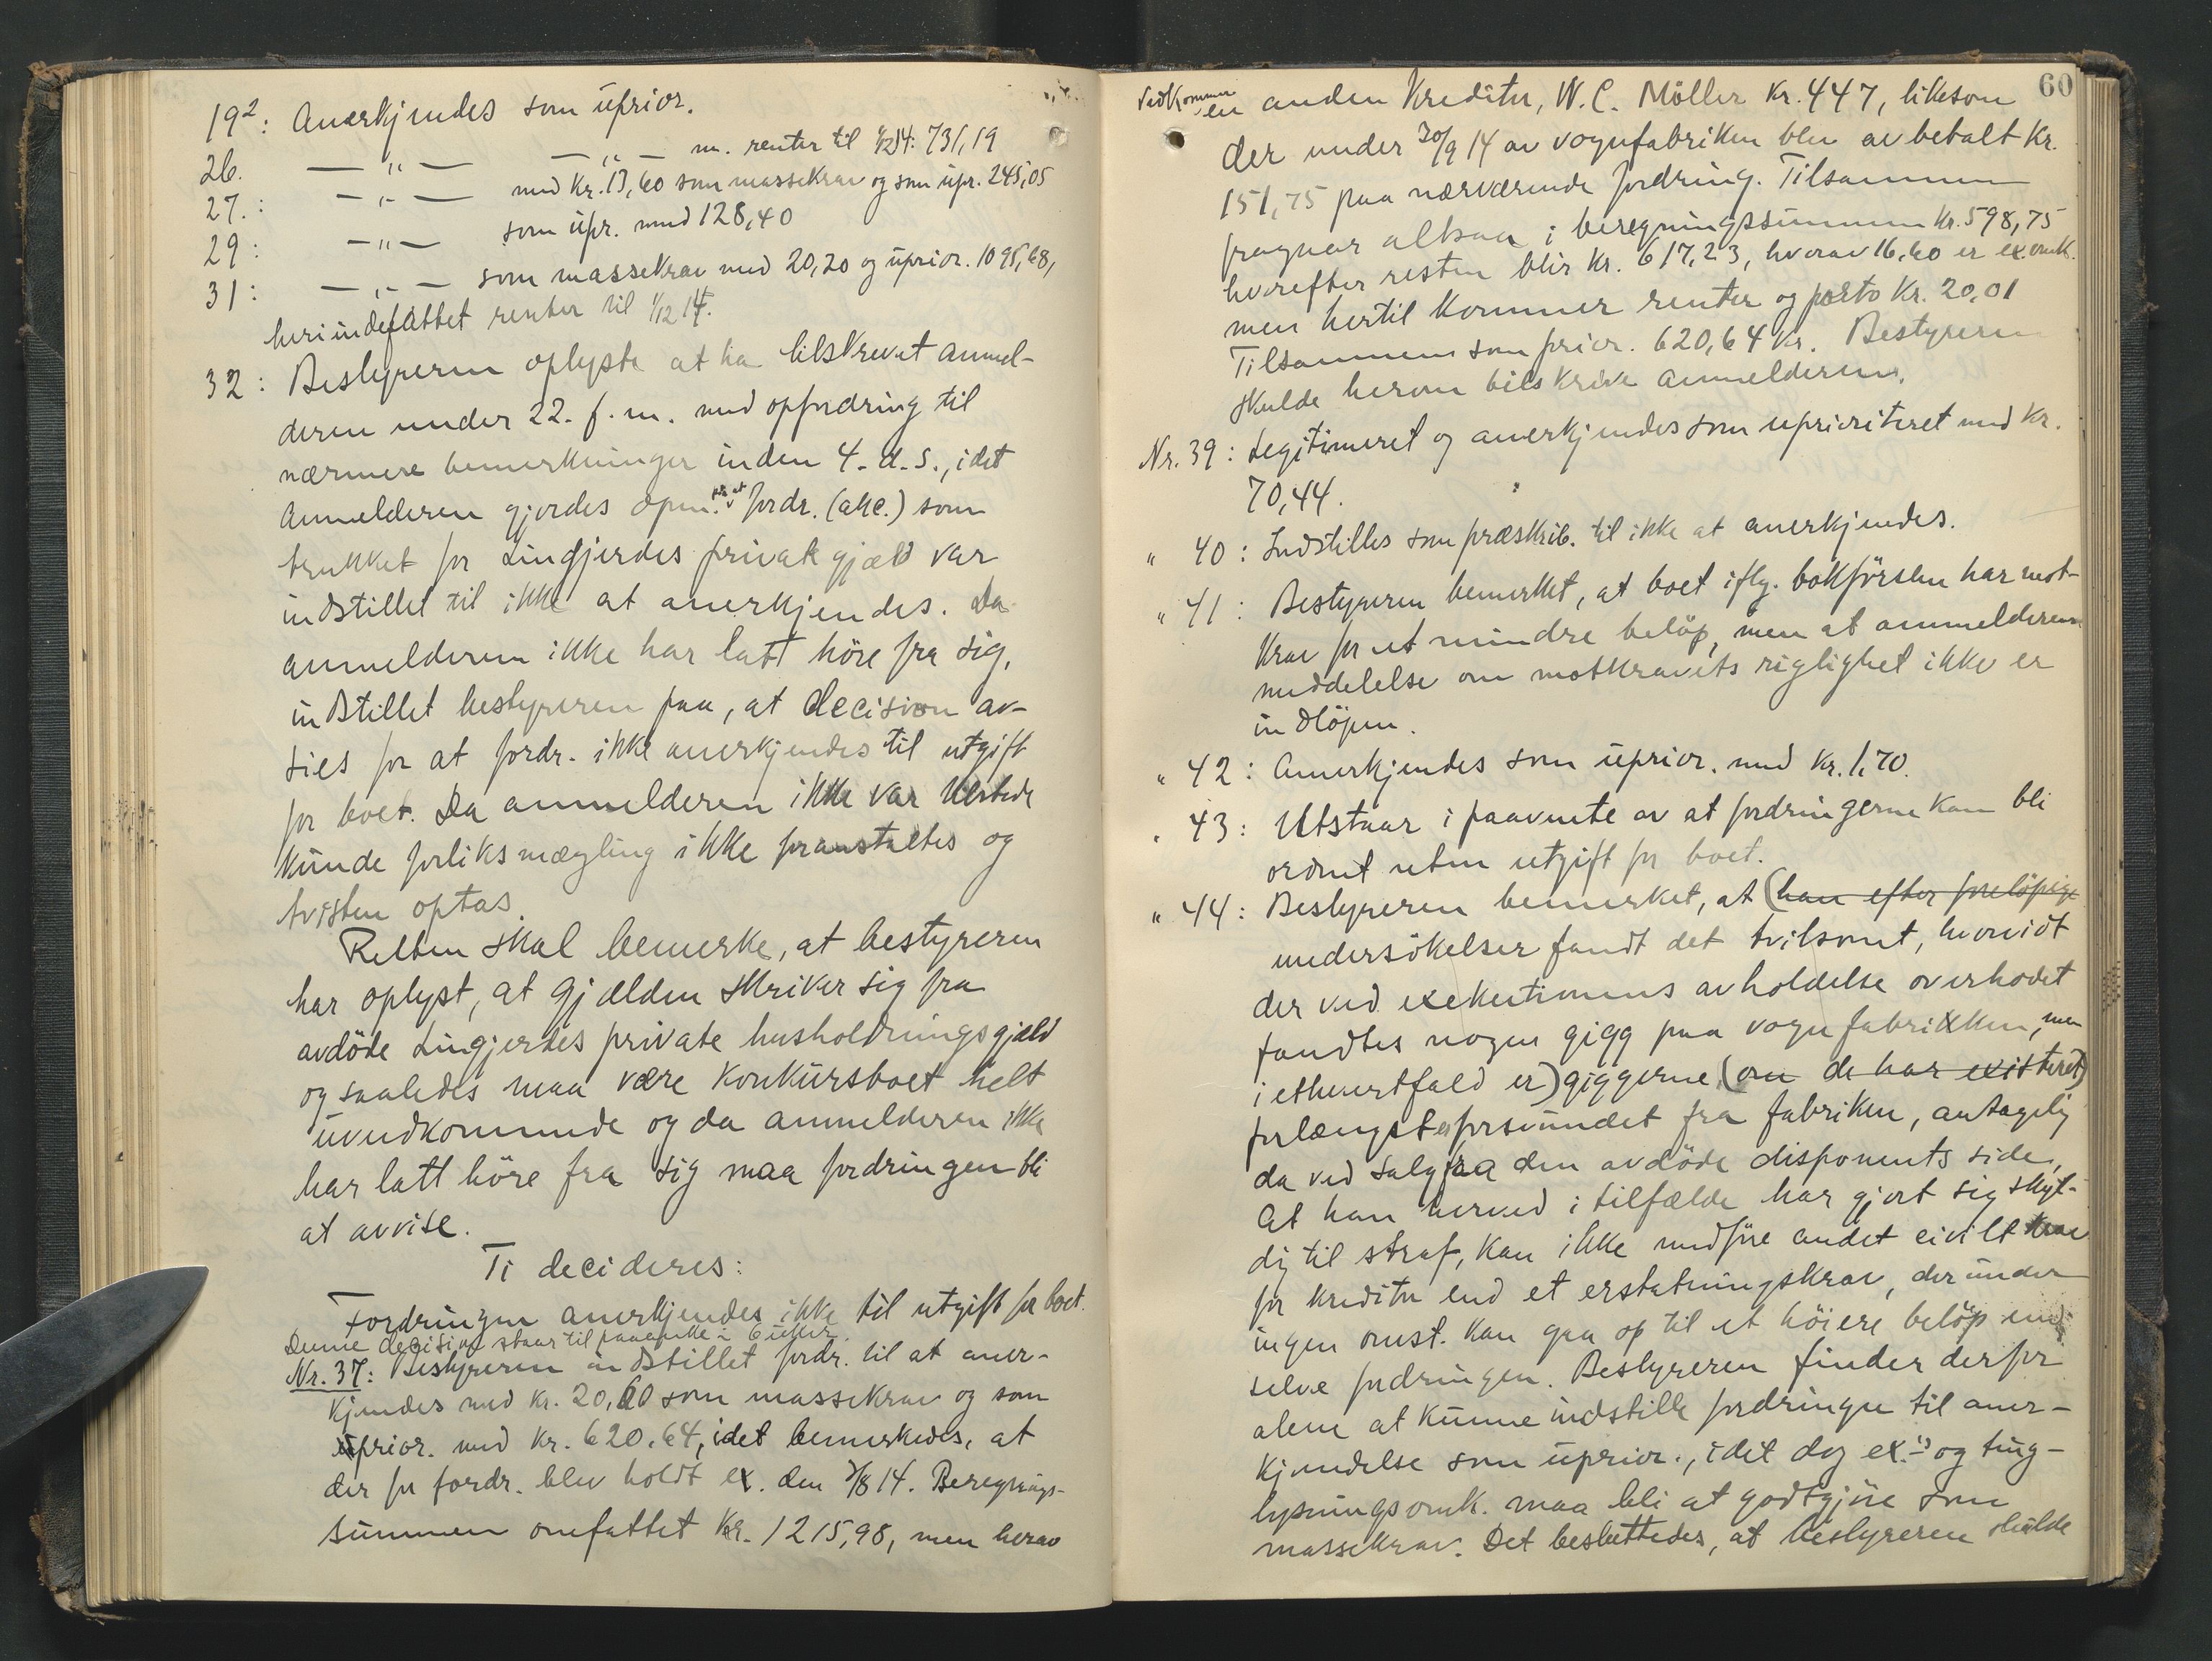 19²: Anerkjendes som uprior.
26. — " — — " — m. renter til 1/12 14: 731,19
27.: — " — med kr. 13,60 som massekrav og som upr. 245,05
29: — " — som upr. med 128,40
31: — " — som massekrav med 20,20 og uprior. 1095,68,
heri indefattet renter til 1/12 14.
32: Bestyreren oplyste at ha tilskrevet anmel-
deren under 22. f. m. med opfordring til
nærmere bemerkninger inden 4. d. s., idet
anmelderen gjordes opm. på at fordr. (akc.) som
trukket for Lingjerdes privat gjæld var
indstillet til ikke at anerkjendes. Da
anmelderen ikke har latt höre fra sig,
indstillet bestyreren paa, at decision av-
sies for at fordr. ikke anerkjendes til utgift
for boet. Da anmelderen ikke var tilstede
kunde forliksmægling ikke foranstaltes og
tvisten optas.
Retten skal bemerke, at bestyreren
har oplyst, at gjælden skriver sig fra
avdöde Lingjerdes private husholdningsgjæld
og saaledes maa være konkursboet helt
uvedkommende og da anmelderen ikke
har latt höre fra sig maa fordringen bli
at avvise.
Ti decideres:
Fordringen anerkjendes ikke til utgift for boet.
Denne decision staar til paaanke i 6 uker.
Nr. 37: Bestyreren indstillet fordr. til at aner-
kjendes med kr. 20,60 som massekrav og som
uprior. med kr. 620,64, idet bemerkedes, at
der for fordr. blev holdt ex. den 3/8 14. Beregnings-
summen omfattet kr. 1215,98, men herav
60
vedkommer en anden kreditor, W. C. Möller kr. 447, likesom
der under 30/9 14 av vognfabriken blev av betalt kr.
151,75 paa nærværende fordring. Tilsammen
fragaar altsaa i beregningssummen kr. 598,75
hvorefter resten blir kr. 617,23, hvorav 16,60 er ex. omk.
men hertil kommer renter og porto kr. 20,01
Tilsammen som prior. 620,64 kr. Bestyreren
skulde herom tilskrive anmelderen.
Nr. 39: Legitimeret og anerkjendes som uprioriteret med kr.
70,44.
" 40: Indstilles som præskrib. til ikke at anerkjendes.
" 41: Bestyreren bemerket, at boet iflg. bokförslen har mot-
krav for et mindre belöp, men at anmelderens
meddelelse om motkravets rigtighet ikke er
indlöpen.
" 42: Anerkjendes som uprior. med kr. 1,70.
" 43: Utstaar i paavente av at fordringerne kan bli
ordnet uten utgift for boet.
" 44: Bestyreren bemerket, at (han efter foreløpige
undersökelser fandt det tvilsomt, hvorvidt
der ved exekutionens avholdelse overhodet
fandtes nogen gigg paa vognfabrikken, men
i ethvertfald er) giggerne (om de har existeret)
forlængst er forsvundet fra fabriken, antagelig
da ved salg fra den avdöde disponents side.
At han herved i tilfælde har gjort sig skyl-
dig til straf, kan ikke medføre andet civilt krav
for kreditor end et erstatningskrav, der under
ingen omst. kan gaa op til et höiere belöp end
selve fordringen. Bestyreren finder derfor
alene at kunne indstille fordringen til aner-
kjendelse som uprior., idet dog ex.- og ting-
lysningsomk. maa bli at godtgjöre som
massekrav. Det besluttedes, at bestyreren skulde